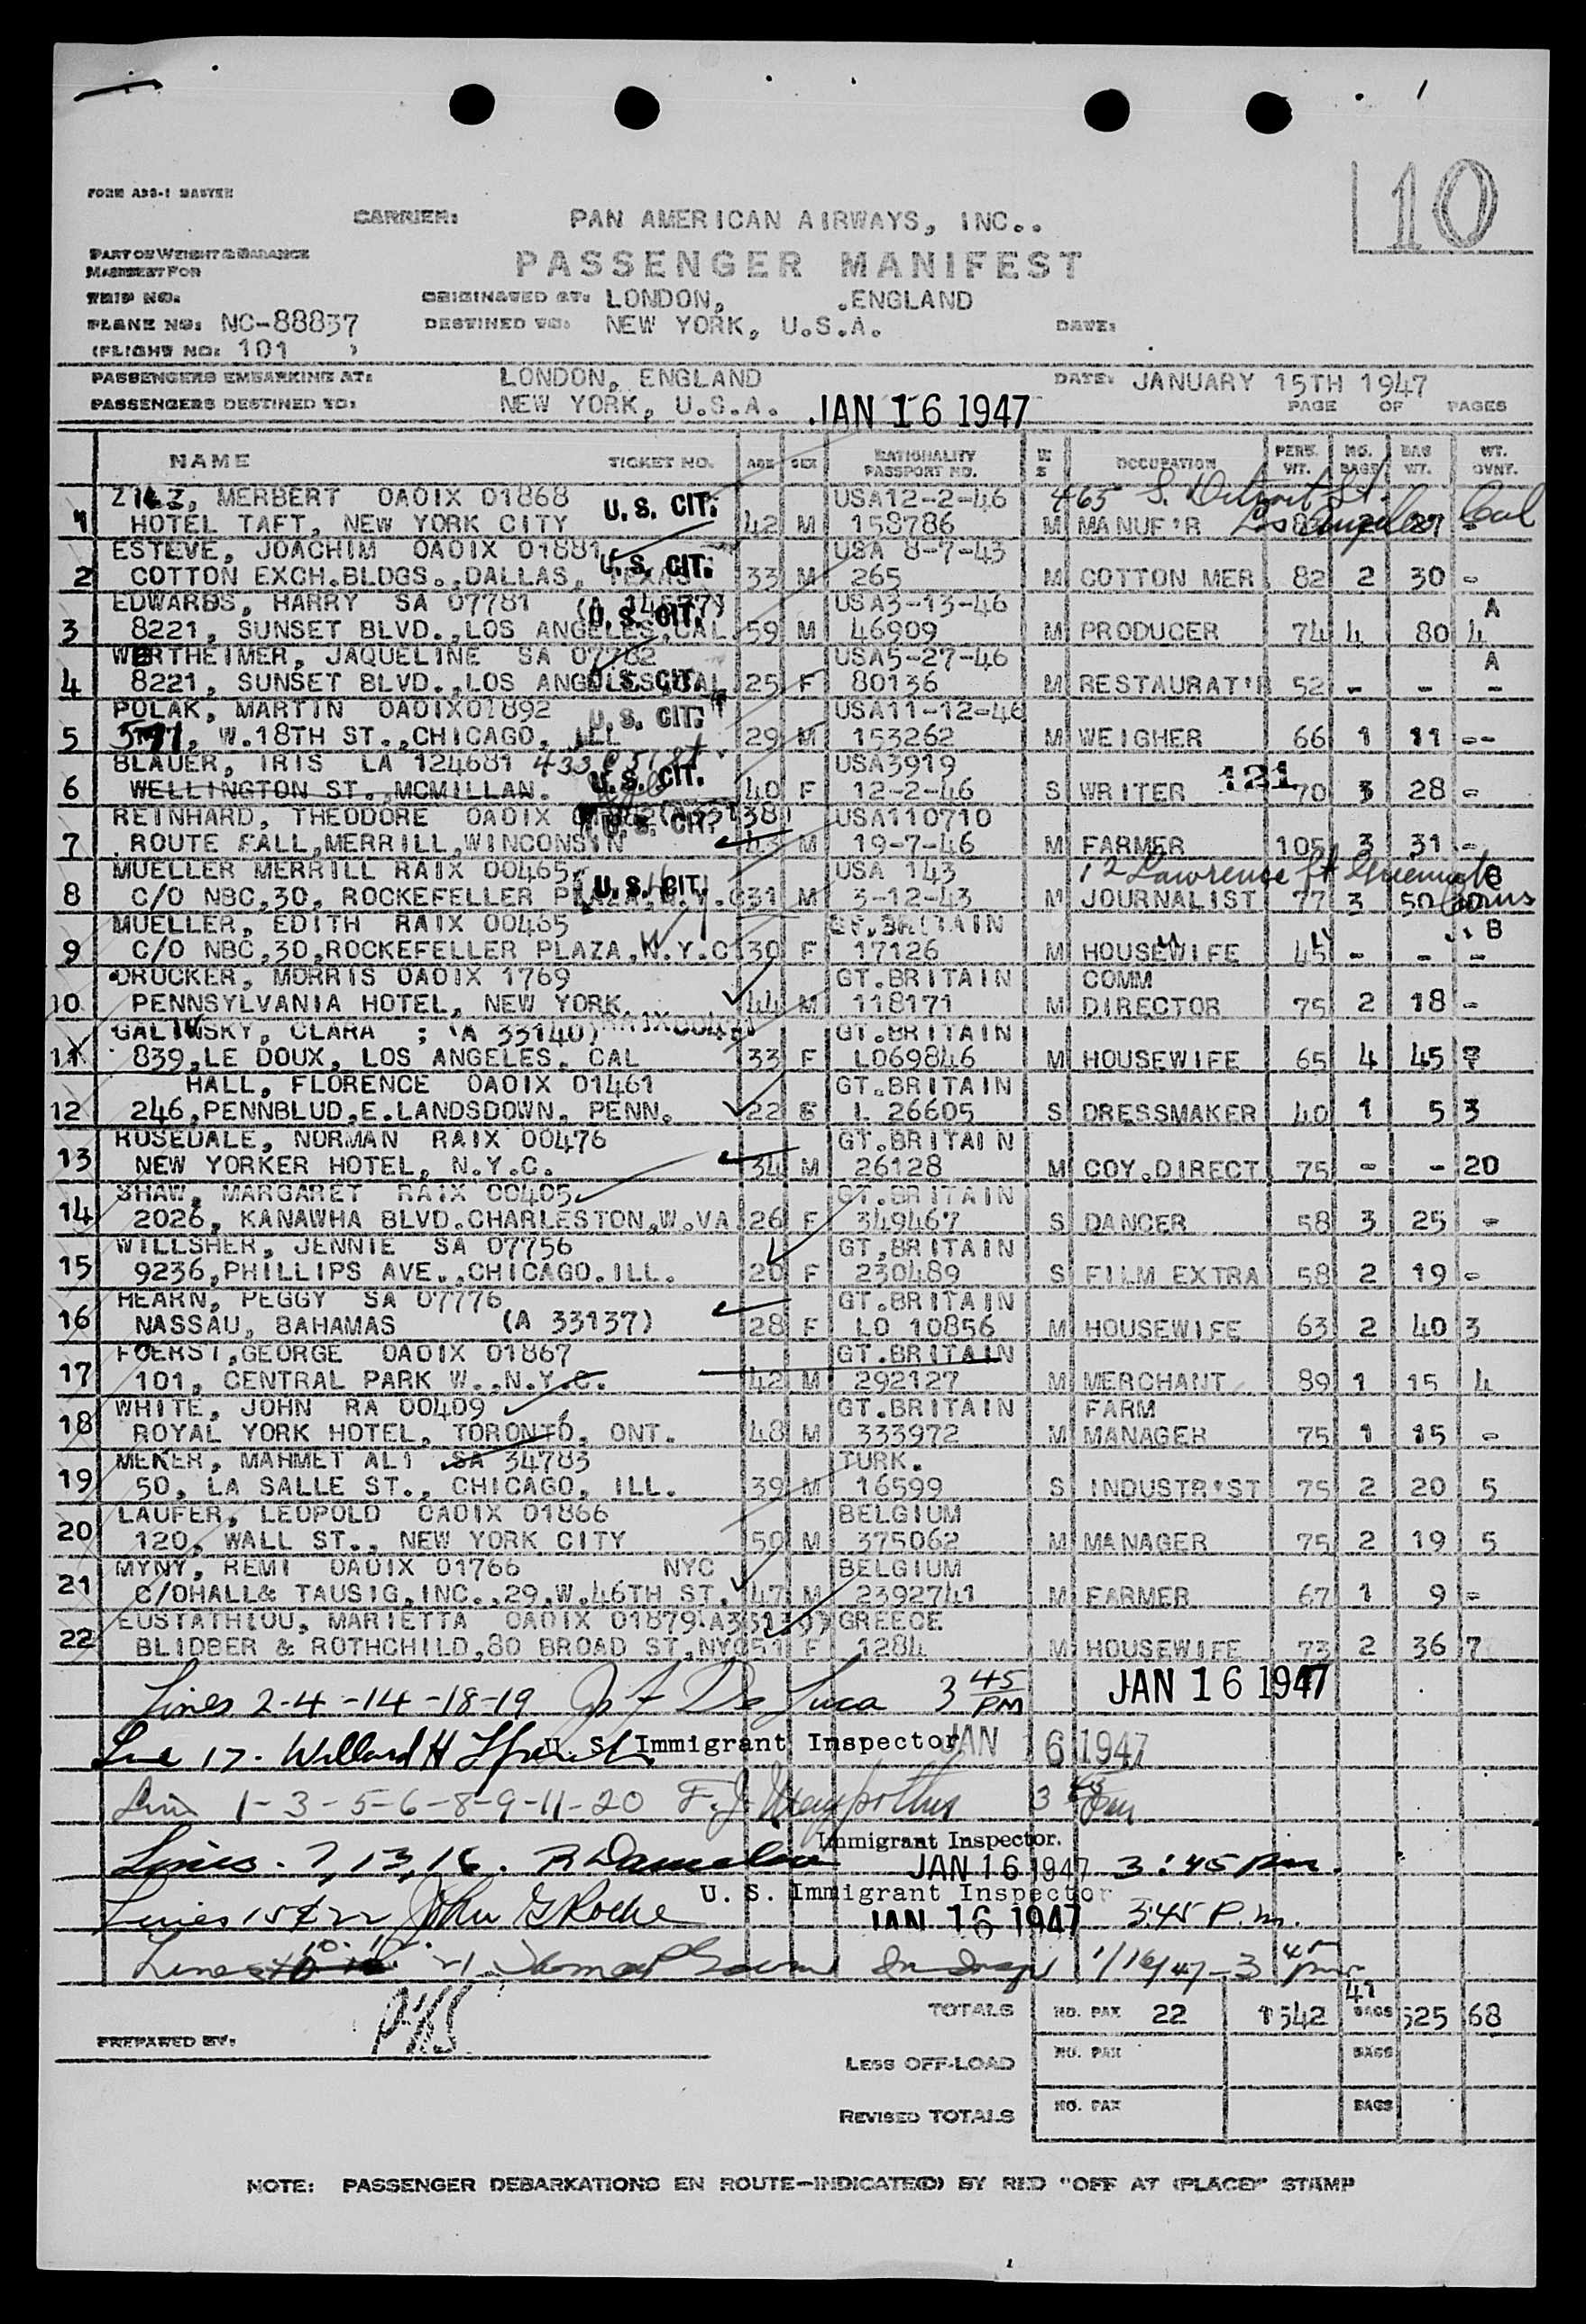 10
FORM A39-1 MASTER
CARRIER: PAN AMERICAN AIRWAYS, INC..
PART OF WEIGHT & BALANCE
PASSENGER MANIFEST
MANIFEST FOR
TRIP NO. ORIGINATED AT: LONDON, .ENGLAND
PLANE NO: NC-88837 DESTINED TO: NEW YORK, U.S.A. DATE:
(FLIGHT NO: 101 )
PASSENGERS EMBARKING AT: LONDON, ENGLAND DATE: JANUARY 15TH 1947
PASSENGERS DESTINED TO: NEW YORK, U.S.A. JAN 16 1947 PAGE OF PAGES
NAME TICKET NO. AGE SEX NATIONALITY PASSPORT NO. M S OCCUPATION PERS. WT. NO. BAGS BAG WT. WT. OVNT.
MERBERT OAOIX 01868 U. S. CIT. USA12-2-46 465 S. Detroit St.
1 HOTEL TAFT, NEW YORK CITY 42 M 158786 M MANUF'R Los Angeles Cal
ESTEVE, JOACHIM OAOIX 01881 U. S. CIT. USA 8-7-43
2 COTTON EXCH.BLDGS.,DALLAS, TEXAS 33 M 265 M COTTON MER 82 2 30 -
EDWARDS, HARRY SA 07781 U. S. CIT. USA3-13-46 A
3 8221, SUNSET BLVD.,LOS ANGELES,CAL 59 M 46909 M PRODUCER 74 4 80 4
WERTHEIMER, JAQUELINE SA 07782 USA5-27-46 A
4 8221, SUNSET BLVD.,LOS ANGELES,CAL U. S. CIT. 25 F 80136 M RESTAURAT'R 52 - - -
POLAK, MARTIN OAOIX01892 U. S. CIT. USA11-12-46
5 W.18TH ST.,CHICAGO, ILL 29 M 153262 M WEIGHER 66 1 11 --
BLAUER, IRIS LA 124681 433 E 51 st USA3919
6 WELLINGTON ST. MCMILLAN. U. S. CIT. 40 F 12-2-46 S WRITER 121 70 3 28 -
REINHARD, THEODORE OAOIX U. S. CIT. USA110710
7 ROUTE FALL,MERRILL,WINCONSIN 43 M 19-7-46 M FARMER 105 3 31 -
MUELLER MERRILL RAIX 00465 USA 143 12 Lawrence St B
8 C/O NBC,30, ROCKEFELLER PLAZA,N.Y.C U. S. CIT. 31 M 3-12-43 M JOURNALIST 77 3 50
MUELLER, EDITH RAIX 00465 GT.BRITAIN B
9 C/O NBC,30,ROCKEFELLER PLAZA,N.Y.C 30 F 17126 M HOUSEWIFE 45 - - -
DRUCKER, MORRIS OAOIX 1769 GT.BRITAIN COMM
10 PENNSYLVANIA HOTEL, NEW YORK 44 M 118171 M DIRECTOR 75 2 18 -
GALINSKY, CLARA ; (A 33140) GT.BRITAIN
11 839,LE DOUX, LOS ANGELES. CAL 33 F L069846 M HOUSEWIFE 65 4 45
HALL, FLORENCE OAOIX 01461 GT.BRITAIN
12 246,PENNBLUD,E.LANDSDOWN. PENN. 22 F L 26605 S DRESSMAKER 40 1 5 3
ROSEDALE, NORMAN RAIX 00476 GT.BRITAIN
13 NEW YORKER HOTEL, N.Y.C. 34 M 26128 M COY.DIRECT 75 - - 20
SHAW, MARGARET RAIX 00405 GT.BRITAIN
14 2026, KANAWHA BLVD.CHARLESTON,W.VA 26 F 349467 S DANCER 58 3 25 -
WILLSHER, JENNIE SA 07756 GT.BRITAIN
15 9236,PHILLIPS AVE.,CHICAGO.ILL. 20 F 230489 S FILM EXTRA 58 2 19 -
HEARN, PEGGY SA 07776 GT.BRITAIN
16 NASSAU, BAHAMAS (A 33137) 28 F LO 10856 M HOUSEWIFE 63 2 40 3
FOERST,GEORGE OAOIX 01867 GT.BRITAIN
17 101, CENTRAL PARK W.,N.Y.C. 42 M 292127 M MERCHANT 89 1 15 4
WHITE, JOHN RA 00409 GT.BRITAIN FARM
18 ROYAL YORK HOTEL, TORONTO, ONT. 48 M 333972 M MANAGER 75 1 15 -
MEKER, MAHMET ALI SA 34783 TURK.
19 50, LA SALLE ST., CHICAGO, ILL. 39 M 16599 S INDUSTR'ST 75 2 20 5
LAUFER, LEOPOLD OAOIX 01866 BELGIUM
20 120, WALL ST., NEW YORK CITY 50 M 375062 M MANAGER 75 2 19 5
MYNY, REMI OAOIX 01766 NYC BELGIUM
21 C/OHALL& TAUSIG,INC.,29,W.46TH ST. 47 M 2392741 M FARMER 67 1 9 -
EUSTATHIOU, MARIETTA OAOIX 01879 GREECE
22 BLIDBER & ROTHCHILD,80 BROAD ST,NYC 51 F 1284 M HOUSEWIFE 73 2 36 7
Lines 2-4-14-18-19 De Luca 3 45 PM JAN 16 1947
Line 17. Willard H U. S. Immigrant Inspector JAN 16 1947
Lines 1-3-5-6-8-9-11-20 F. J. 3 45 pm
Immigrant Inspector.
Lines. 7, 13, 16. JAN 16 1947 3:45 pm.
U. S. Immigrant Inspector
Lines 15 & 22 John G Roche JAN 16 1947 3:45 P.m.
Lines 21 1/16/47-3 45 pm
TOTALS NO. PAX 22 1542 41 BAGS 525 68
PREPARED BY:
LESS OFF-LOAD NO. PAX BAGS
REVISED TOTALS NO. PAX BAGS
NOTE: PASSENGER DEBARKATIONS EN ROUTE-INDICATE(D) BY RED "OFF AT (PLACE)" STAMP